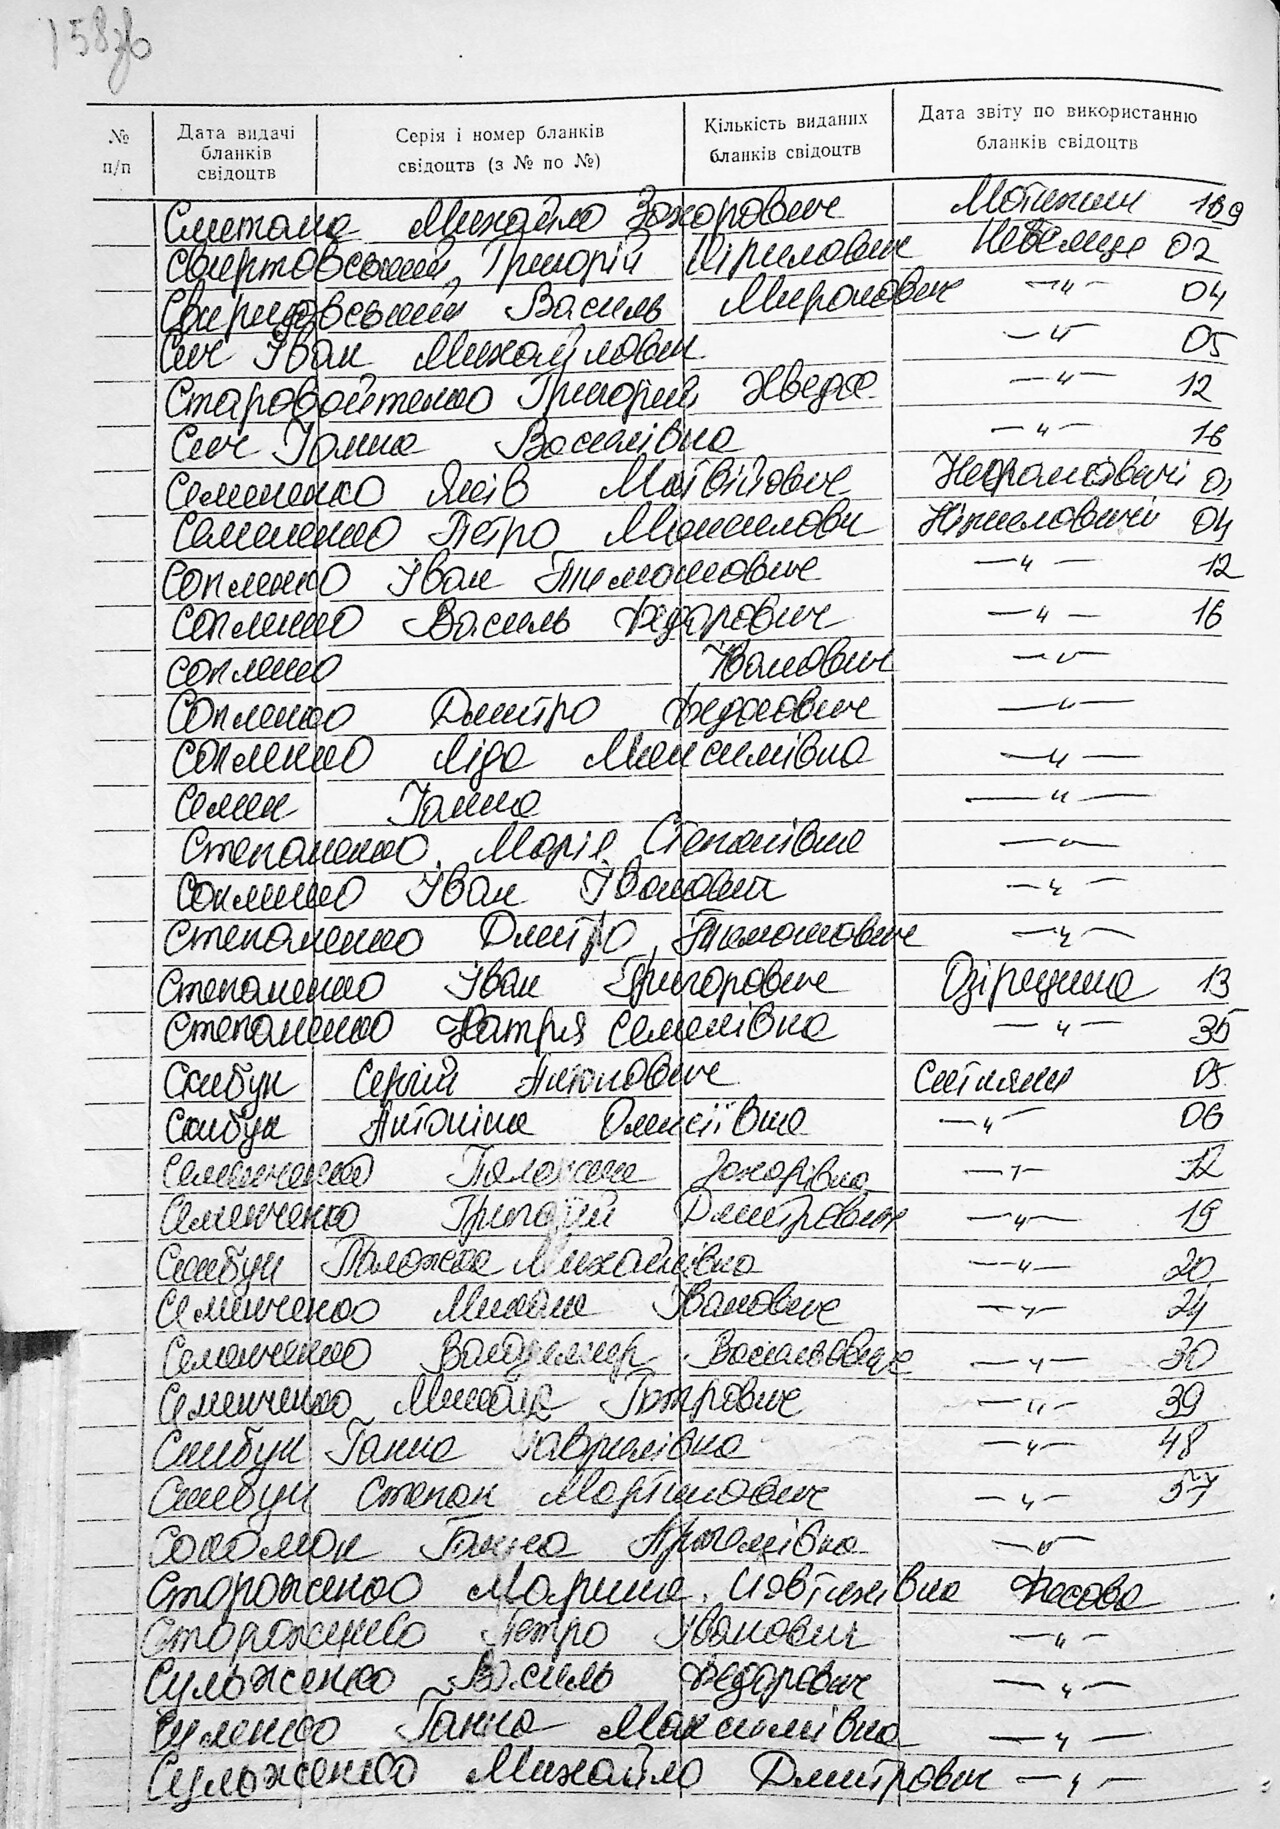 158зв
№ п/п Дата видачі бланків свідоцтв Серія і номер бланків свідоцтв (з № по №) Кількість виданих бланків свідоцтв Дата звіту по використанню бланків свідоцтв
Сметана Михайло Захарович Мотижин 109
Свиртовський Григорій Кирилович Небелиця 02
Свиридовський Василь Миронович —"— 04
Сич Іван Михайлович —"— 05
Старовойтенко Григорій —"— 12
Сич Ганна Василівна —"— 16
Семененко Яків Матвійович 01
Семененко Петро Ніжиловичі 04
Сопленко Іван Тимошович —"— 12
Сопленко Василь Федорович —"— 16
Сопленко Іванович —"—
Сопленко Дмитро Федорович —"—
Сопленко Ліда Максимівна —"—
Семен Ганна —"—
Степаненко Марія Степанівна —"—
Сопленко Іван Іванович —"—
Степаненко Дмитро Тимошович —"—
Степаненко Іван Григорович Озірщина 13
Степаненко Натря Семенівна —"— 35
Скибун Сергій Антонович Ситняки 05
Скибун Антоніна Олексіївна —"— 06
Семенченко Палажка Захарівна —"— 12
Семенченко Григорій Дмитрович —"— 19
Скибун Палажка Михайлівна —"— 20
Семенченко Михайло Іванович —"— 24
Семенченко Володимир Васильович —"— 30
Семенченко Михайло Петрович —"— 39
Скибун Ганна Гаврилівна —"— 48
Скибун Степан Мартинович —"— 57
Сокомон Ганна —"—
Стороженко Марина Фасова
Стороженко Петро Іванович —"—
Сульженко Василь Федорович —"—
Суленко Ганна Максимівна —"—
Сульженко Михайло Дмитрович —"—